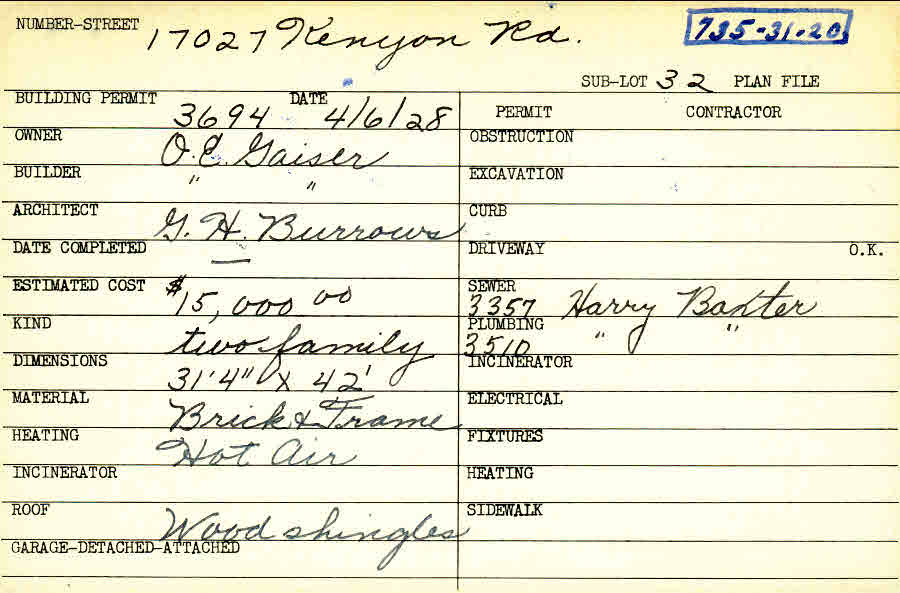 NUMBER-STREET 17027 Kenyon Rd. 735-31-20
SUB-LOT 32 PLAN FILE
BUILDING PERMIT 3694 DATE 4/6/28
PERMIT CONTRACTOR
OWNER O.E. Gaiser
OBSTRUCTION
BUILDER " "
EXCAVATION
ARCHITECT G. H. Burrows
CURB
DATE COMPLETED —
DRIVEWAY O.K.
ESTIMATED COST $15,000 00
SEWER 3357 Harry Baxter
KIND two family
PLUMBING 3510 " "
DIMENSIONS 31'4" X 42'
INCINERATOR
MATERIAL Brick & Frame
ELECTRICAL
HEATING Hot Air
FIXTURES
INCINERATOR
HEATING
ROOF Wood shingles
SIDEWALK
GARAGE-DETACHED-ATTACHED